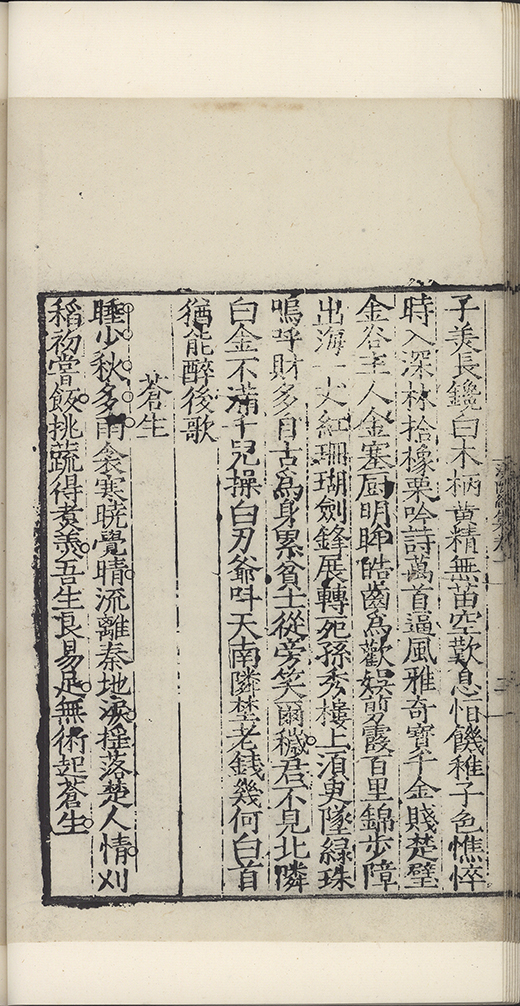 子美長鑱白木柄黃精無苗空歎息怕饑稚子色憔悴
時入深林拾橡栗吟詩萬首逼風雅奇寶千金賤楚璧
金谷主人金塞厨明眸皓齒為歡娛剪霞百里錦步障
出海一丈紅珊瑚劍鋒展轉死孫秀樓上湏臾墜緑珠
嗚呼財多自古為身累貧士從旁笑爾穢君不見北隣
白金不滿千兒操白刃爺呌天南隣埜老錢幾何白首
猶能醉後歌
蒼生
睡少秋多雨衾寒曉覺晴流離秦地淚揺落楚人情刈
稻初嘗飯挑蔬得煮羹吾生良易足無術起蒼生